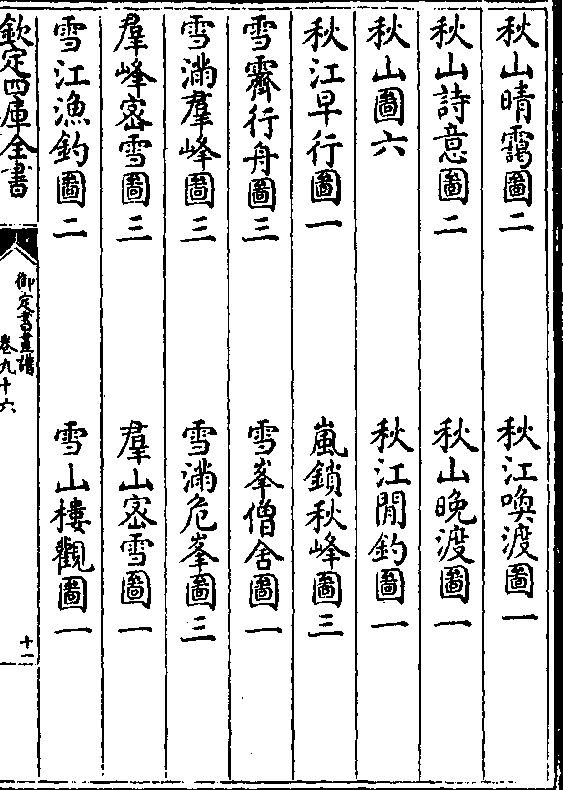 秋山晴靄圖二　秋江喚渡圖一
秋山詩意圖二　秋山晚渡圖一
秋山圖六　秋江閒釣圖一
秋江早行圖一　嵐鎖秋峰圖三
雪霽行舟圖三　雪峯僧舍圖一
雪滿羣峰圖三　雪滿危峯圖三
羣峰密雪圖三　羣山密雪圖一
雪江漁釣圖二　雪山樓觀圖一
欽定四庫全書
御定書畫譜
卷九十六
十一